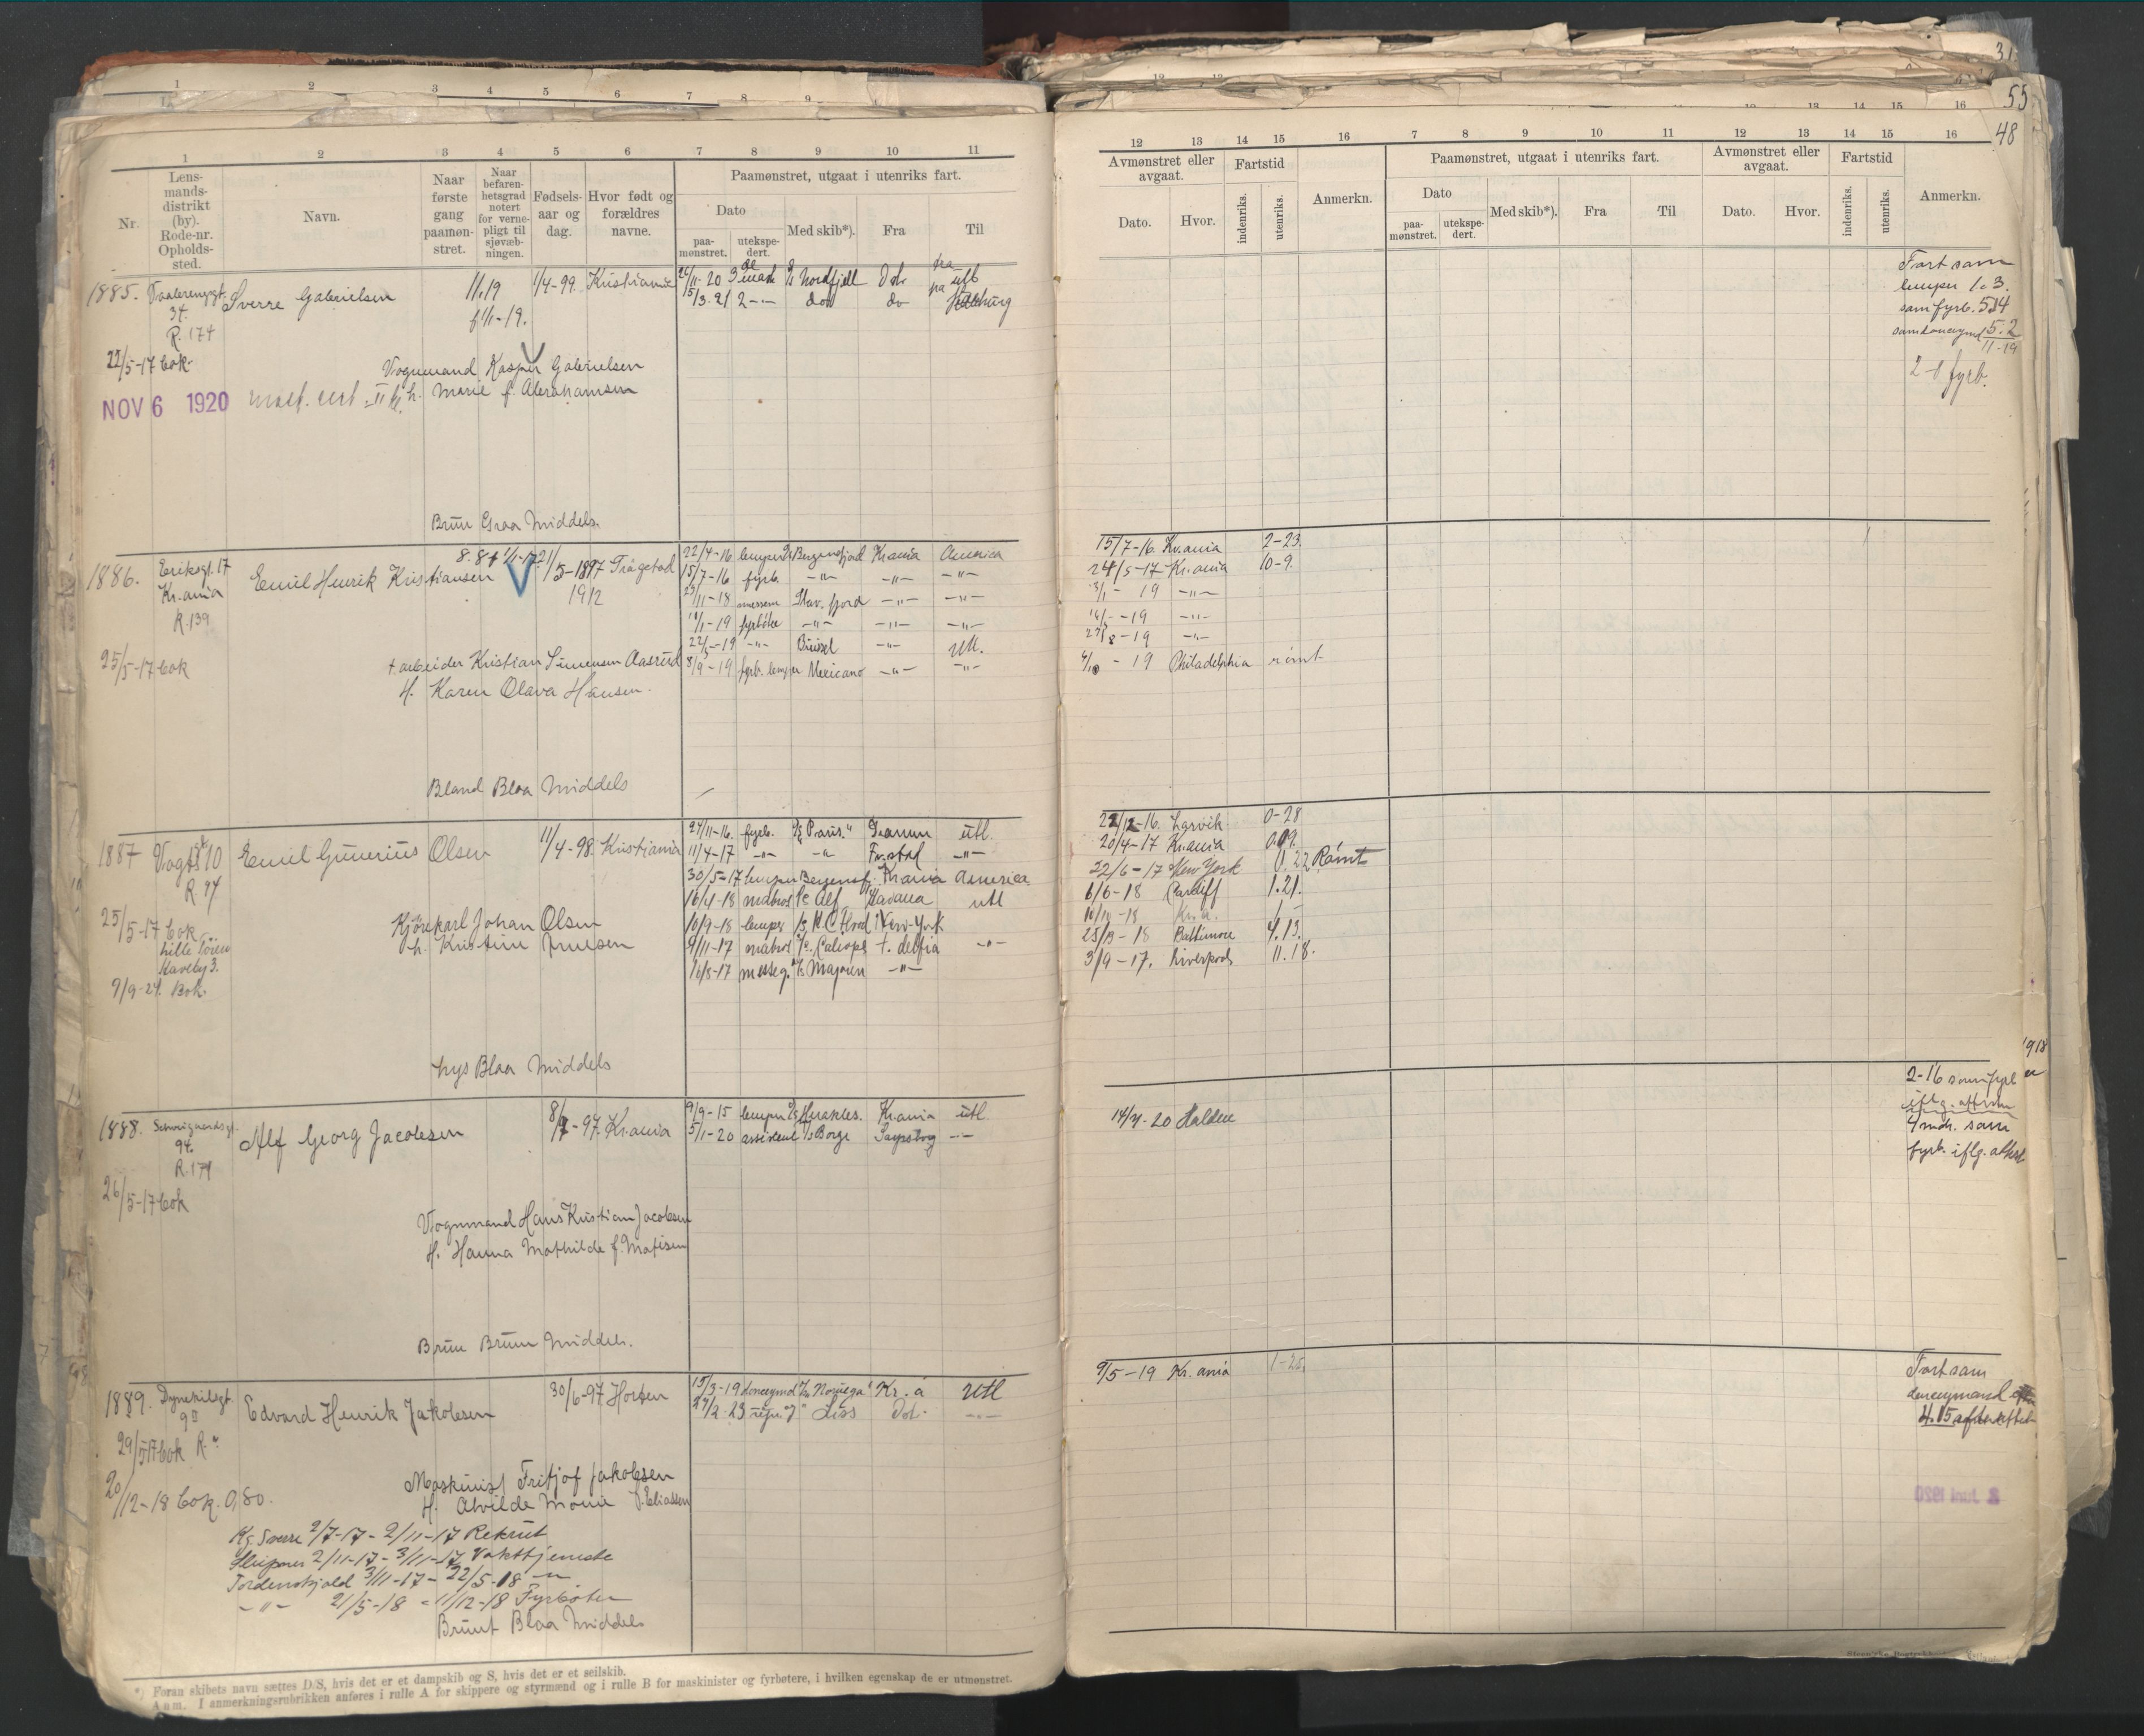 1 2 3 4 5 6 7 8 9
31
55
48
1 2 3 4 5 6 7 8 9 10 11
Nr.
Lens-
mands-
distrikt
(by).
Rode-nr.
Opholds-
sted.
Navn.
Naar
første
gang
paamøn-
stret.
Naar
befaren-
hetsgrad
notert
for verne-
pligt til
sjøvæb-
ningen.
Fødsels-
aar og
dag.
Hvor født og
forældres
navne.
Paamønstret, utgaat i utenriks fart.
Dato
paa-
mønstret.
utekspe-
dert.
Med skib*).
Fra
Til
1885. Vaalerenggt. Sverre Gabrielsen 11.19 1/4-99. Kristiania 3 mask Nordfjell
34.
R. 174
15/3-21 2 do
22/5-17 bok
Vognmand Kasper Gabrielsen
NOV 6 1920
h. Marie f. Abrahamsen
Brun Graa Middels.
1886. Eriksgt. 17 Emil Henrik Kristiansen 21/5-1897 22/4-16 lemper Bergensfjord Kr.ania America
Kr.ania 1912 15/7-16 fyrb. -"- -"- -"-
R. 139 Stav.fjord -"- -"-
-19 fyrbøte -"- -"- -"-
22/5-19 -"- -"- Utl.
25/5-17 bok
+ arbeider Kristian Simensen Aasrud 8/9-19 fyrb. lemper Mexicano -"- -"-
H. Karen Olava Hansen.
Bland Blaa Middels
1887 Vogtsgt 10 Emil Gunerius Olsen 11/4-98. Kristiania 24/11-16. fyrb. "Paris." utl.
R. 94 11/4-17 -"- -"- Fr.stad -"-
30/5-17 lemper Bergensf. Kr.ania America
16/4-18 matros Alf Havana utl
25/5-17 bok
Kjørekarl Johan Olsen 10/9-18 lemper New-York
h. Kristine Jensen 9/11-17 matros
16/8-17 messeg. Majoren -"-
9/9-24. Bok.
Lys Blaa Middels
1888. Schweigaardsgt. Alf Georg Jacobsen 8/7-97. Kr.ania 9/9-15 lemper Herakles. Kr.ania utl
94. 5/1-20 assistent Borge Sarpsborg -"-
R. 171
26/5-17 bok
Vognmand Hans Kristian Jacobsen
H. Hanna Mathilde f. Matisen
Brun Brun Middels.
1889. Dynekilsgt. Edvard Henrik Jakobsen 30/6-97 Horten 15/3-19 donkeymd "Norvega" Kr.a Utl
9 Liss do.
29/5-17 bok R.
20/12-18 bok. 0,80.
Maskinist Fritjof Jakobsen
H. Alvilde Marie f. Eliassen
Kg. Sverre 2/7-17 - 2/11-17 Rekrut
Sleipner 2/11-17 - 3/11-17 Vakttjeneste
Tordenskjold 3/11-17 - 22/5-18 -"-
-"- 21/5-18 - 11/12-18 Fyrbøter
Brunt Blaa Middels
*) Foran skibets navn sættes D/S, hvis det er et dampskib og S, hvis det er et seilskib.
Anm. I anmerkningsrubrikken anføres i rulle A for skippere og styrmænd og i rulle B for maskinister og fyrbøtere, i hvilken egenskap de er utmønstret.
12 13 14 15 16 7 8 9 10 11 12 13 14 15 16
Avmønstret eller
avgaat.
Fartstid
Dato.
Hvor.
indenriks.
utenriks.
Anmerkn.
Paamønstret, utgaat i utenriks fart.
Dato
paa-
mønstret.
utekspe-
dert.
Med skib*).
Fra
Til
Avmønstret eller
avgaat.
Fartstid
Dato.
Hvor.
indenriks.
utenriks.
Anmerkn.
Fart som
lemper 1.3.
som fyrb. 5.14
5.2
11-19
2 fyrb.
15/7-16. Kr.ania 2-23.
24/5-17 Kr.ania 10-9.
3/1-19 -"-
-19 -"-
-19 -"-
-19 Philadelphia rømt
22/12-16. Larvik 0-28
20/4-17 Kr.ania 0.09.
22/6-17 New York 0.22 Rømt
6/6-18 Cardiff 1.21.
Kr.a.
-18 Baltimore 4.13.
3/9-17. Liverpool 11.18.
1918
2-16 som fyrb
iflg. attester
4 mdr. som
fyrb. iflg. attest
14/4-20 Halden
9/5-19 Kr.ania 1-25.
Fart som
donkeymand
4.15